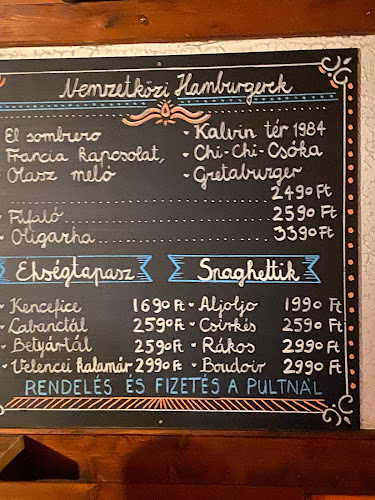 Nemzetközi Hamburgerek
El sombrero
Francia kapcsolat,
Olasz meló
Kalvin tér 1984
Chi-Chi-Csóka
Gretaburger
2490 Ft
Fifaló 2590 Ft
Oligarha 3390 Ft
Éhségtapasz
Kencefice 1690 Ft
Cabanctál 2590 Ft
Betyártál 2590 Ft
Velencei kalamár 2990 Ft
Spaghettik
Aljoljo 1990 Ft
Csirkés 2590 Ft
Rákos 2990 Ft
Boudoir 2990 Ft
RENDELÉS ÉS FIZETÉS A PULTNÁL